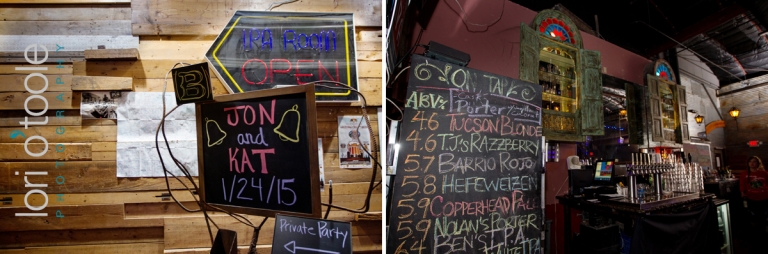 lori o'toole
PHOTOGRAPHY
IPA ROOM
OPEN
B
JON
and
KAT
1/24/15
Private Party
ON TAP
ABV:
Porter
4.6 TUCSON BLONDE
4.6 T.J.'S RAZZBERRY
5.7 BARRIO ROJO
5.8 HEFEWEIZEN
5.9 COPPERHEAD PALE
5.9 NOLAN'S PORTER
6.4 BEN'S IPA